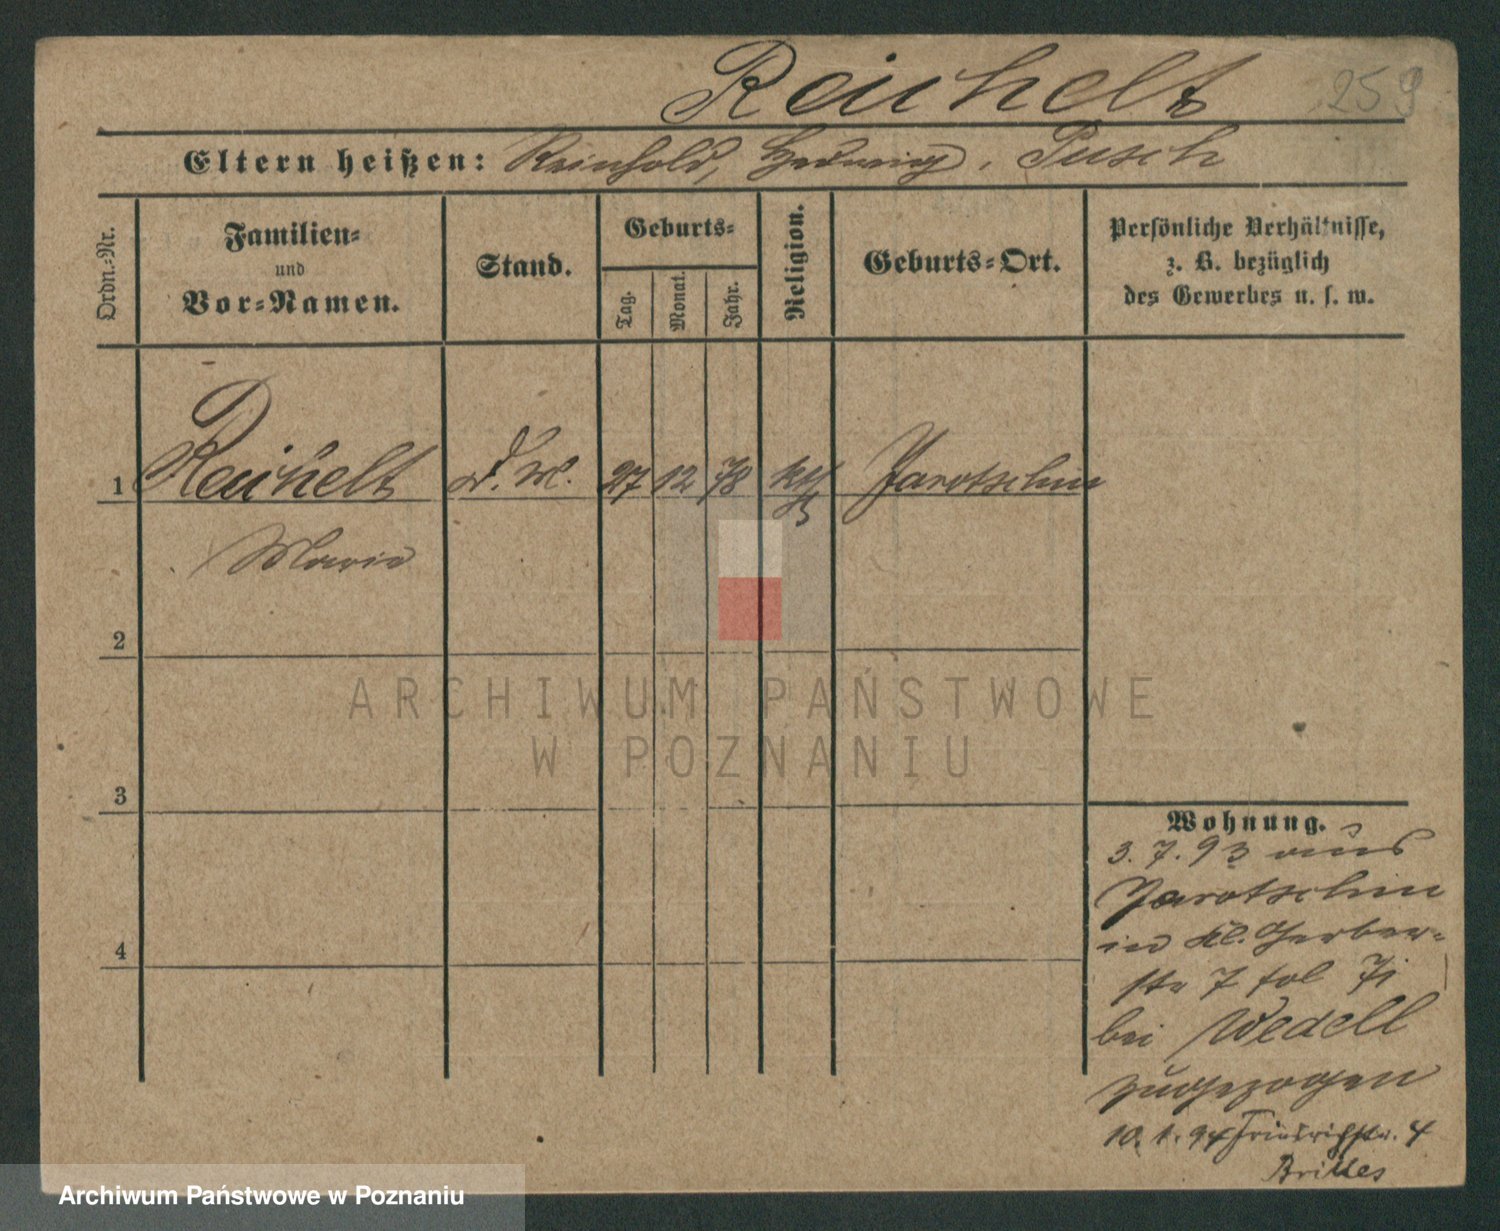 Reichelt 259
Eltern heißen: Reinhold, Hedwig, Pusch
Ordn.-Nr.
Familien-
und
Vor-Namen.
Stand.
Geburts-
Tag.
Monat.
Jahr.
Religion.
Geburts-Ort.
Persönliche Verhältnisse,
z. B. bezüglich
des Gewerbes u. s. w.
1 Reichelt 27 12 78 kth Jarotschin
Marie
2
3
4
ARCHIWUM PAŃSTWOWE
W POZNANIU
Wohnung.
3. 7. 93 aus
Jarotschin
in Kl. Gerber-
str 7 fol
bei Wedell
zugezogen
10. 1. 94 Friedrichstr. 4
Archiwum Państwowe w Poznaniu